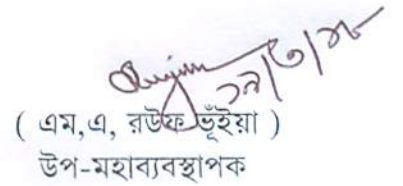 ( এম,এ, রউফ ভূঁইয়া )
উপ-মহাব্যবস্থাপক